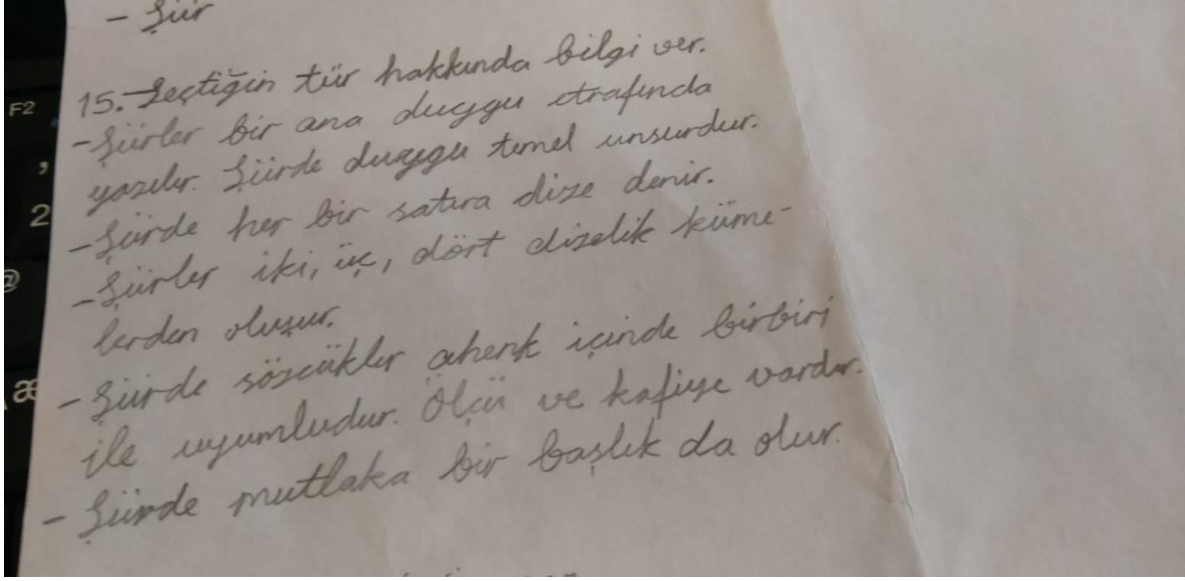 - Şiir
15. Seçtiğin tür hakkında bilgi ver.
- Şiirler bir ana duygu etrafında
yazılır. Şiirde duygu temel unsurdur.
- Şiirde her bir satıra dize denir.
- Şiirler iki, üç, dört dizelik küme-
lerden oluşur.
- Şiirde sözcükler ahenk içinde birbiri
ile uyumludur. Ölçü ve kafiye vardır.
- Şiirde mutlaka bir başlık da olur.
F2
,
2
@
æ